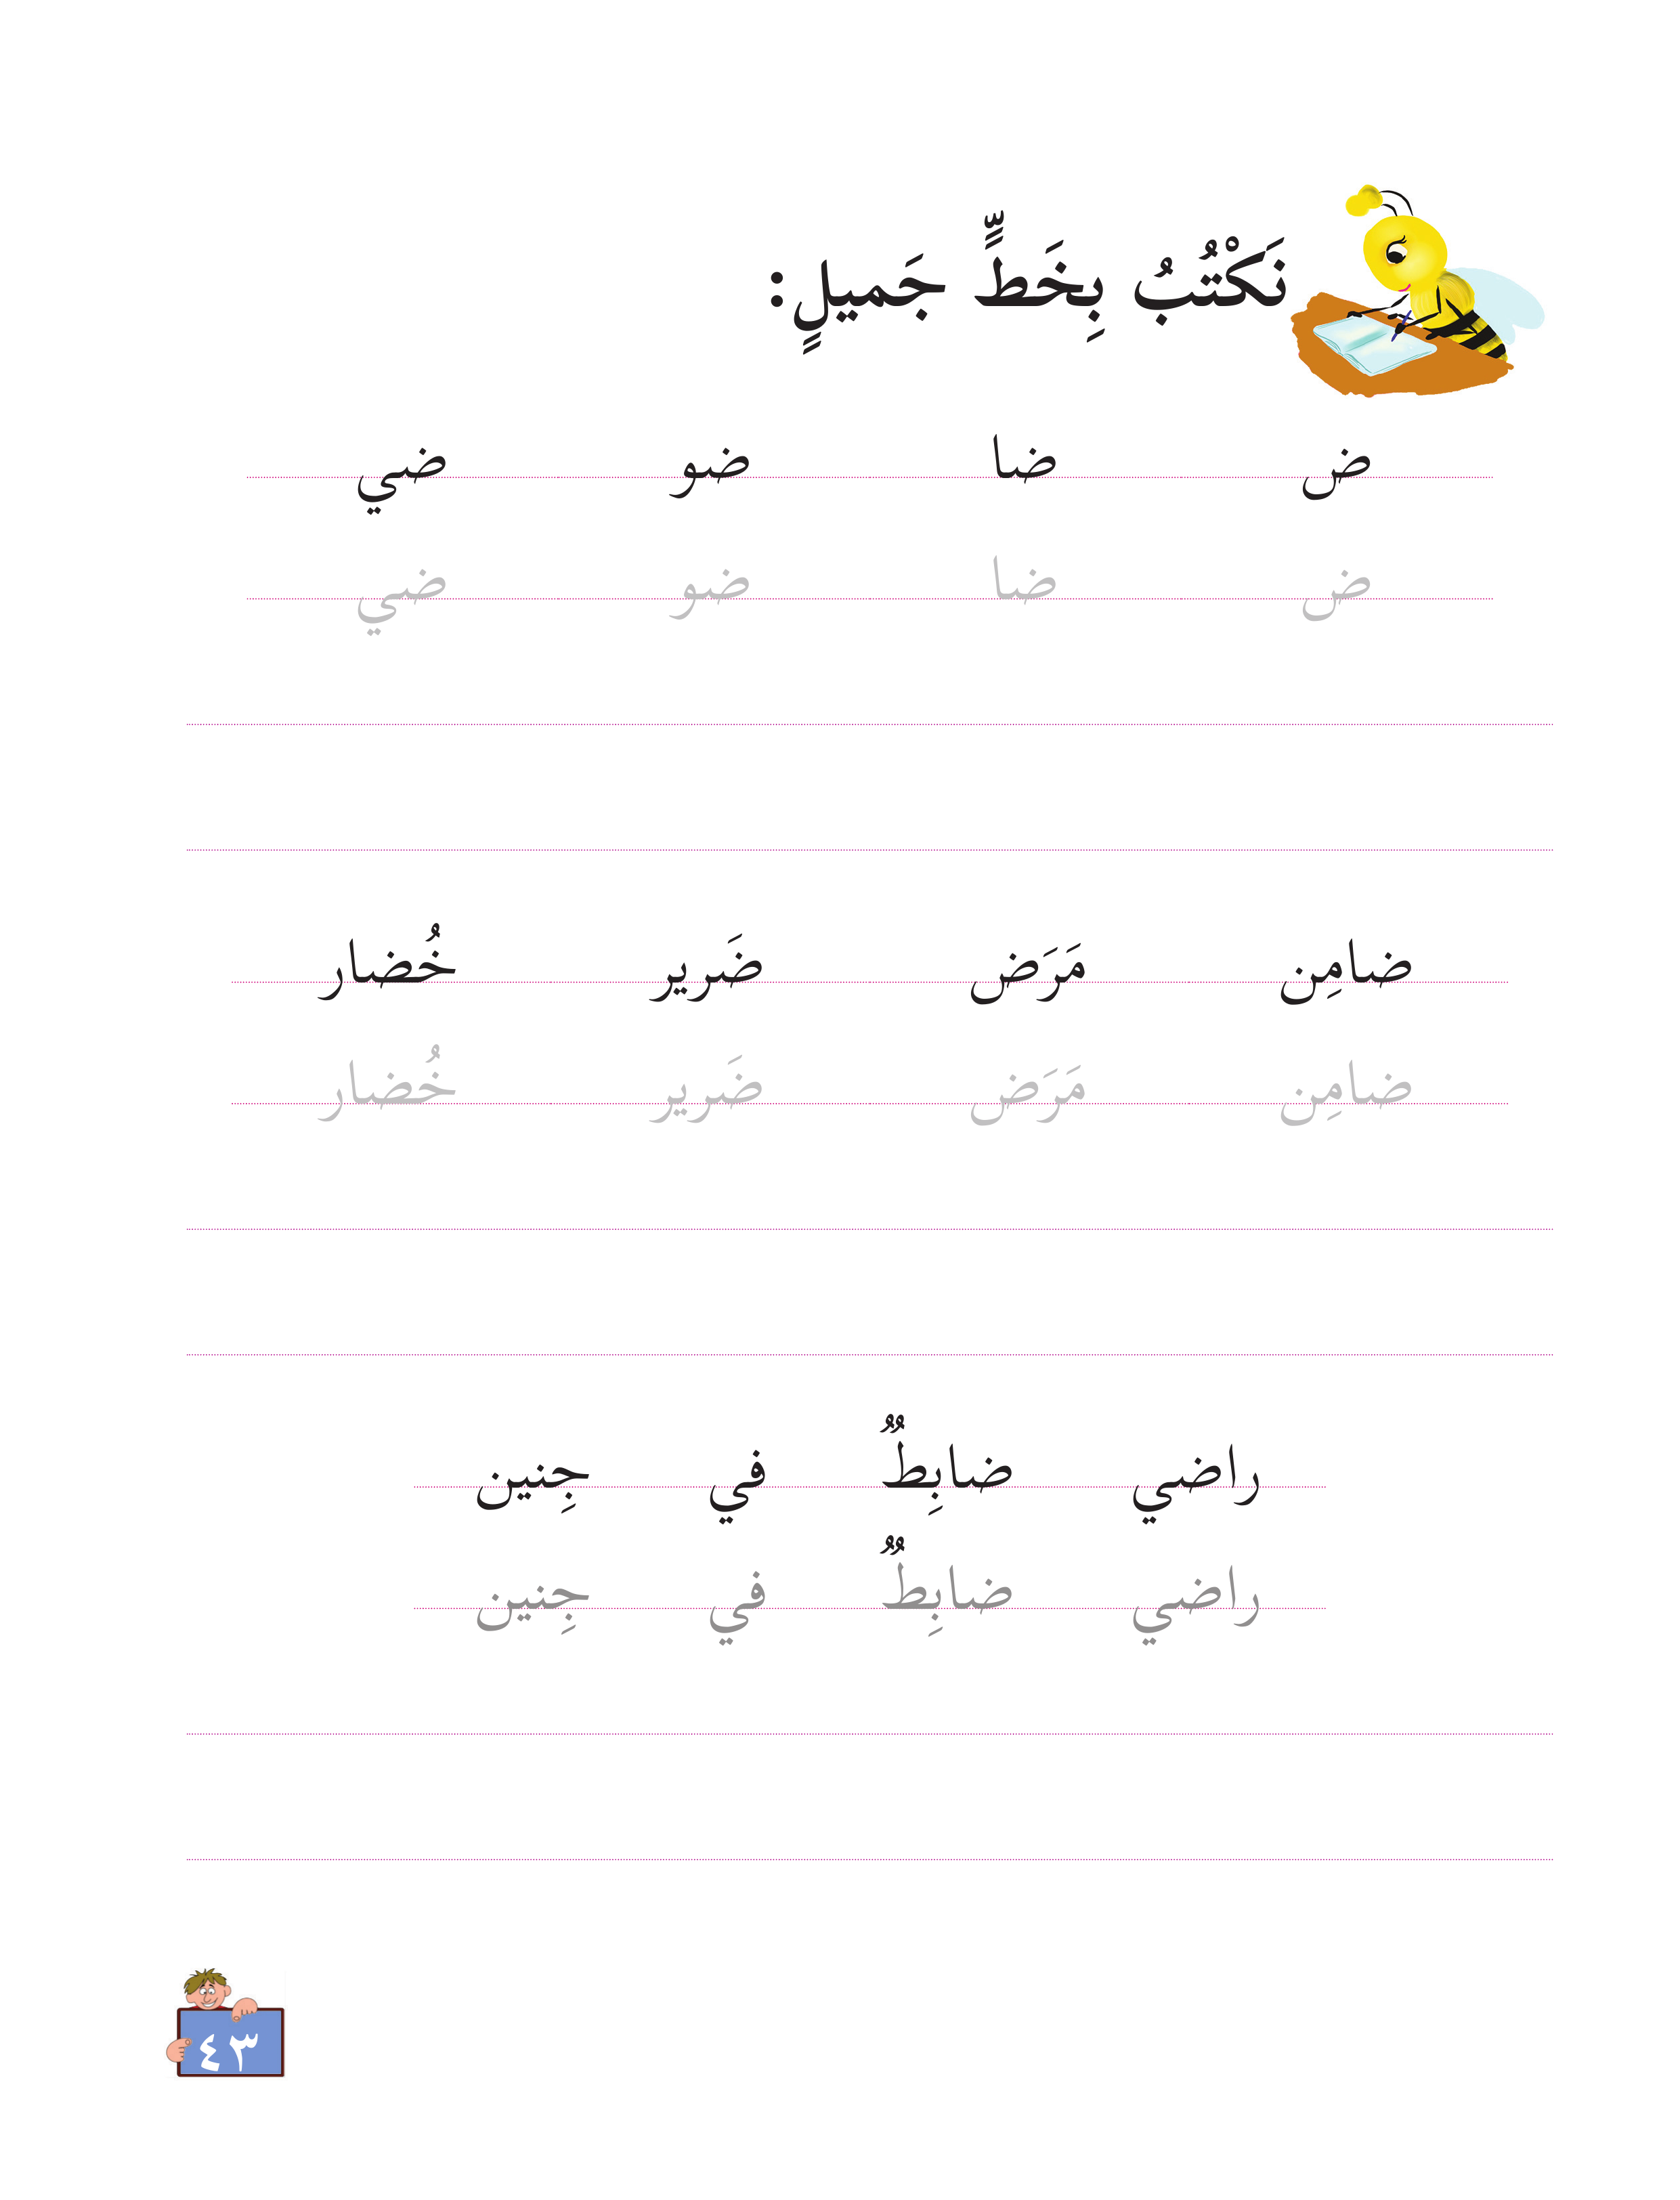 نَكْتُبُ بِخَطٍّ جَميلٍ:
ض ضا ضو ضي
ض ضا ضو ضي
ضامِن مَرَض ضَرير خُضار
ضامِن مَرَض ضَرير خُضار
راضي ضابِطٌ في جِنين
راضي ضابِطٌ في جِنين
٤٣